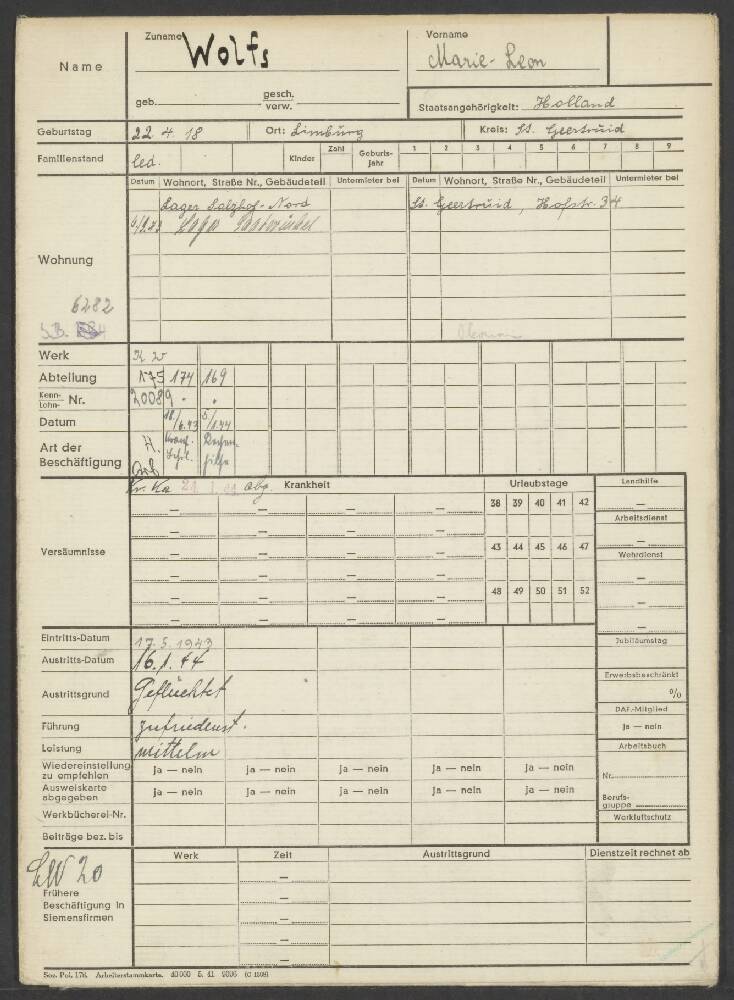 Name
Zuname Wolfs
Vorname Marie-Leon
geb. gesch. verw.
Staatsangehörigkeit: Holland
Geburtstag 22.4.18 Ort: Limburg Kreis: St. Geertruid
Familienstand led. Kinder Zahl Geburts-jahr 1 2 3 4 5 6 7 8 9
Datum Wohnort, Straße Nr., Gebäudeteil Untermieter bei Datum Wohnort, Straße Nr., Gebäudeteil Untermieter bei
Lager Salzhof-Nord St. Geertruid, Hofstr. 34
Lager Saatwinkel
Wohnung
6282
Werk K W
Abteilung 175 174 169
Kenn- Lohn- Nr. 20089 " "
Datum 18./6.43 5/1.44
Art der Beschäftigung H. Arb
Kr. Ka abg. Krankheit Urlaubstage Landhilfe
38 39 40 41 42
Arbeitsdienst
Versäumnisse 43 44 45 46 47
Wehrdienst
48 49 50 51 52
Eintritts-Datum 17.5.1943 Jubiläumstag
Austritts-Datum 16.1.44
Austrittsgrund Geflüchtet Erwerbsbeschränkt
%
DAF.-Mitglied
Führung zufriedenst. ja — nein
Leistung mittelm Arbeitsbuch
Wiedereinstellung zu empfehlen ja — nein ja — nein ja — nein ja — nein ja — nein
Nr.
Ausweiskarte abgegeben ja — nein ja — nein ja — nein ja — nein ja — nein
Berufs-gruppe
Werkbücherei-Nr. Werkluftschutz
Beiträge bez. bis
Werk Zeit Austrittsgrund Dienstzeit rechnet ab
LW 20
Frühere
Beschäftigung in
Siemensfirmen
Soz. Pol. 176. Arbeiterstammkarte. 40000 5. 41 9006 (C 1509)